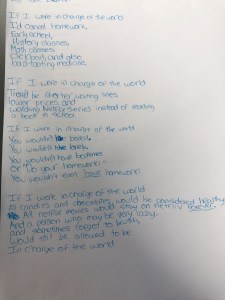 If I were in charge of the world
I'd cancel homework,
Early school,
History classes
Math classes
and also
bad tasting medicine.
If I were in charge of the world
There'd be shorter waiting lines
lower prices and
watching Netflix series instead of reading
a book in school.
If I were in charge of the world
You wouldn't be bored.
You wouldn't be
You wouldn't have bedtimes
Or "Do your homework"
You wouldn't even have homework
If I were in charge of the world
candies and chocolates would be considered healthy
All netflix movies would stay on netflix
And a person who may be very lazy,
and sometimes forgot to brush,
Would still be allowed to be
In charge of the world